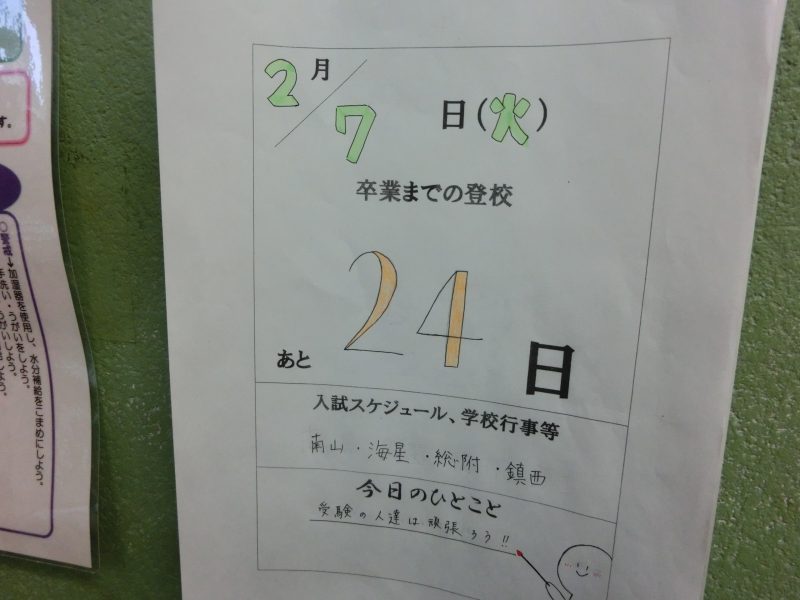 す。
○警戒→加湿器を使用し、水分補給をこまめにしよう。
手洗い・うがいをしよう。
2月/7日(火)
卒業までの登校
あと24日
入試スケジュール、学校行事等
南山・海星・総附・鎮西
今日のひとこと
受験の人達は頑張ろう!!